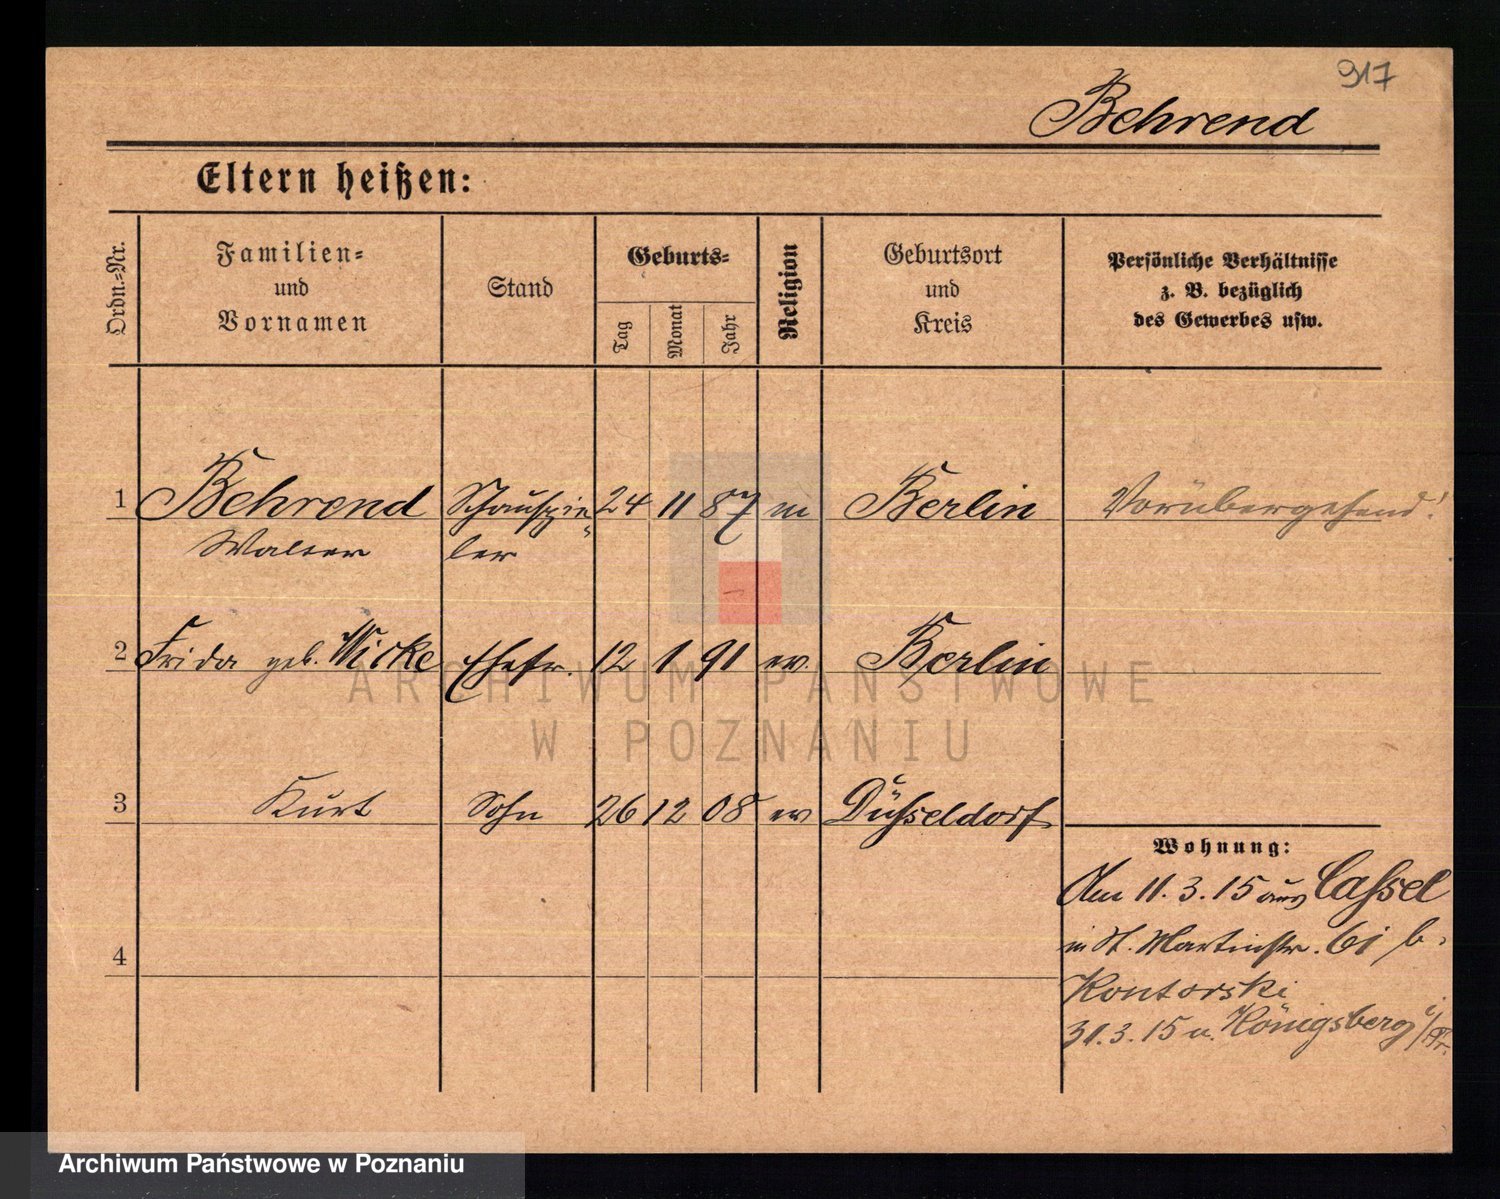 917
Behrend
Eltern heißen:
Ordn.-Nr.
Familien-
und
Vornamen
Stand
Geburts-
Tag
Monat
Jahr
Religion
Geburtsort
und
Kreis
Persönliche Verhältnisse
z. B. bezüglich
des Gewerbes usw.
1 Behrend Schauspie- 24 11 87 m Berlin Vorübergehend!
Walter ler
2 Frida geb. Wicke Ehefr. 12 1 91 ev. Berlin
3 Kurt Sohn 26 12 08 ev Düsseldorf
Wohnung:
Am 11.3.15 aus Cassel
in St. Martinstr. 61 b.
4
Kontorski
31.3.15 n. Königsberg i/Pr.
ARCHIWUM PAŃSTWOWE
W POZNANIU
Archiwum Państwowe w Poznaniu